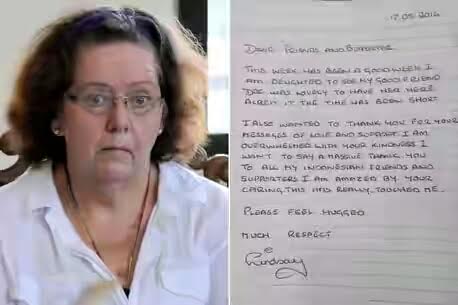 17.05.2014
DEAR FRIENDS AND SUPPORTERS
THIS WEEK HAS BEEN A GOOD WEEK I
AM DELIGHTED TO SEE MY GOOD FRIEND
DEE WAS LOVELY TO HAVE HER HERE
ALBEIT THE TIME WAS BEEN SHORT
I ALSO WANTED TO THANK YOU FOR YOUR
MESSAGES OF LOVE AND SUPPORT I AM
OVERWHELMED WITH YOUR KINDNESS I
WANT TO SAY A MASSIVE THANK YOU
TO ALL MY INDONESIAN FRIENDS AND
SUPPORTERS I AM AMAZED BY YOUR
CARING, THIS HAS REALLY TOUCHED ME
PLEASE FEEL HUGGED
MUCH RESPECT
Lindsay